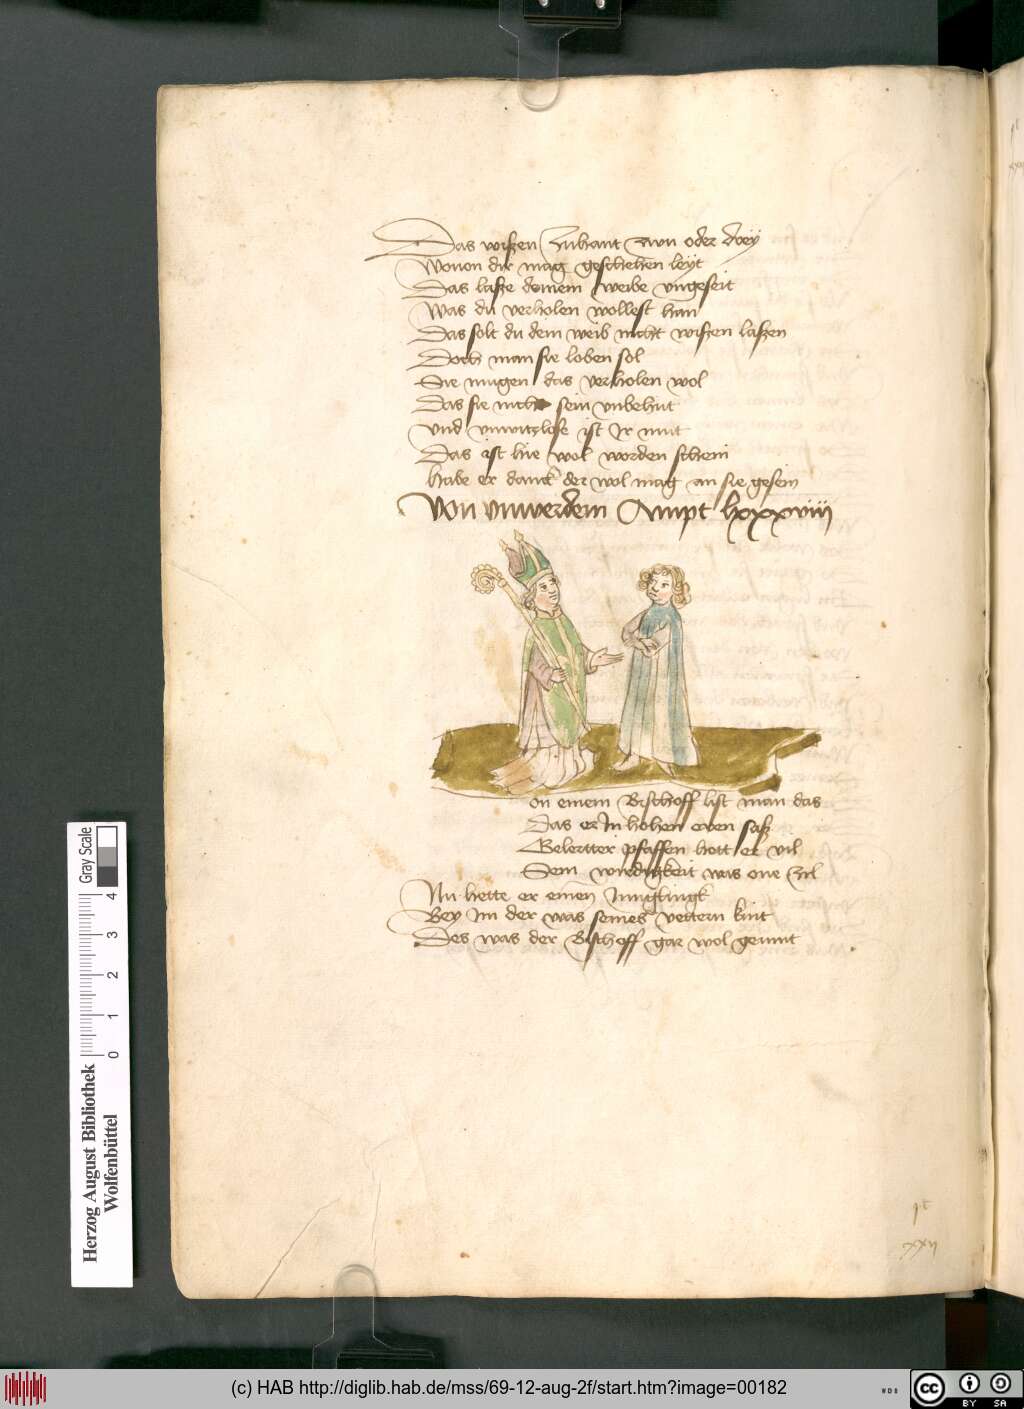 Das wissen zuhant zwu oder drey
Wouon dir mag geschehen leyt
Das lasse deinem weibe vngeseit
Was du verholen wollest han
Das solt du dem weib nicht wissen lassen
Doch man sie loben sol
Sie mugen das verholen wol
Das sie nicht sein vnbehut
Vnd vnwitzlose ist Ir mut
Das ist hie wol worden schein
habe er danck der wol mag an sie gesein
Von vnwerdem Ampt lxxxviii
on einem Bischoff list man das
Das er In hohen eren sasz
Gelertter pfaffen hett er vil
Sein wirdigkeit was one zil
Nu hette er einen Jungling
Bey Im der was seines vettern kint
Des was der Bischoff gar wol gemut
Gray Scale
4
3
2
1
0
Herzog August Bibliothek
Wolfenbüttel
(c) HAB http://diglib.hab.de/mss/69-12-aug-2f/start.htm?image=00182
WDB
cc
BY SA